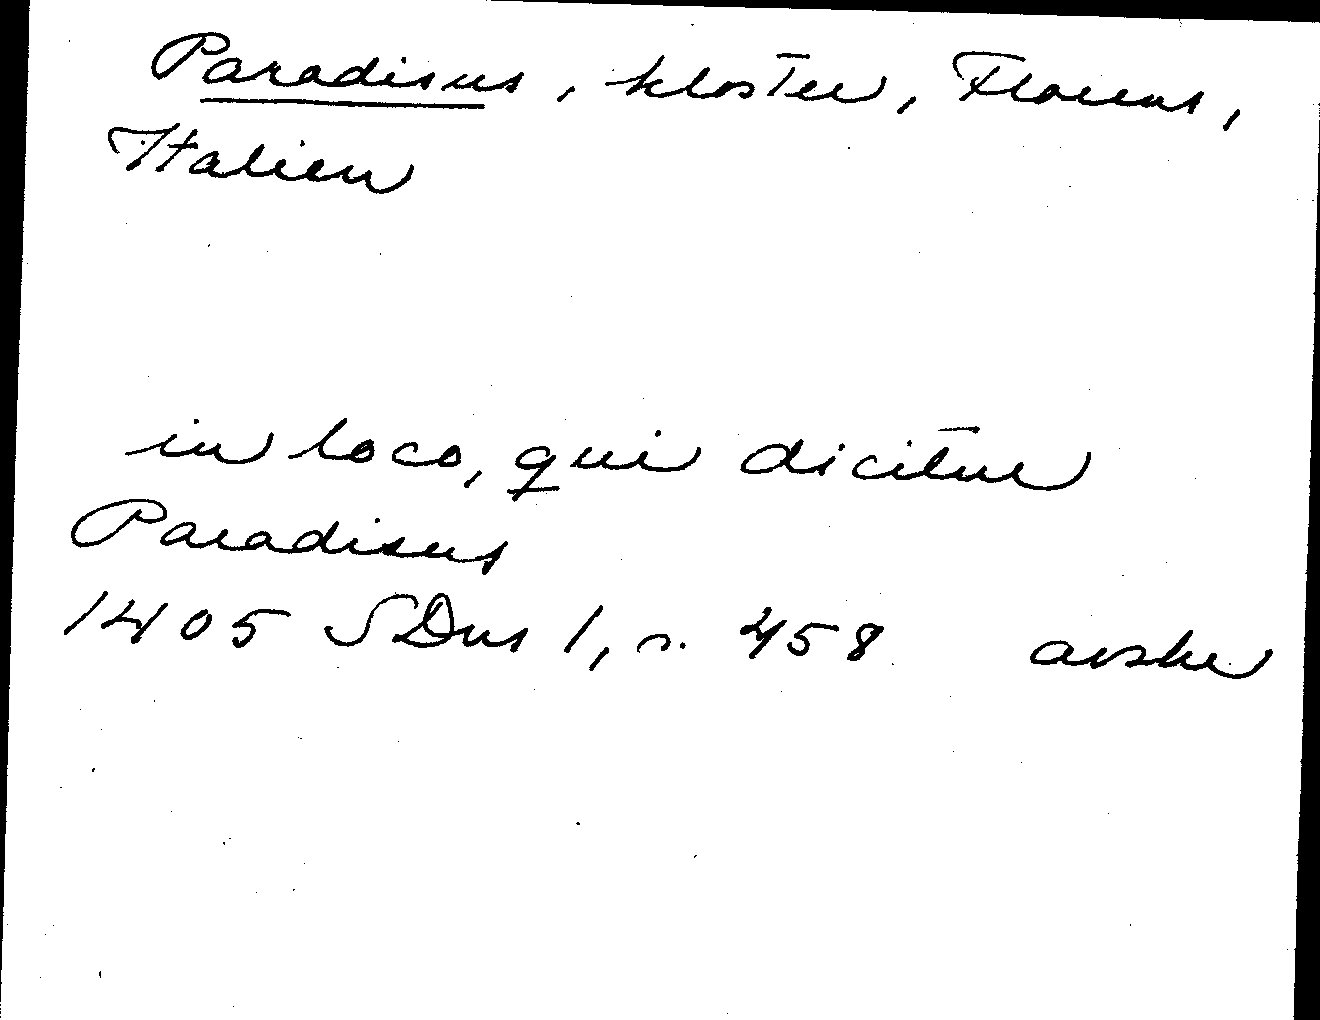 Paradisus, kloster, Florens,
Italien
in loco, qui dicitur
Paradisus
1405 SDns 1, s. 458 avskr